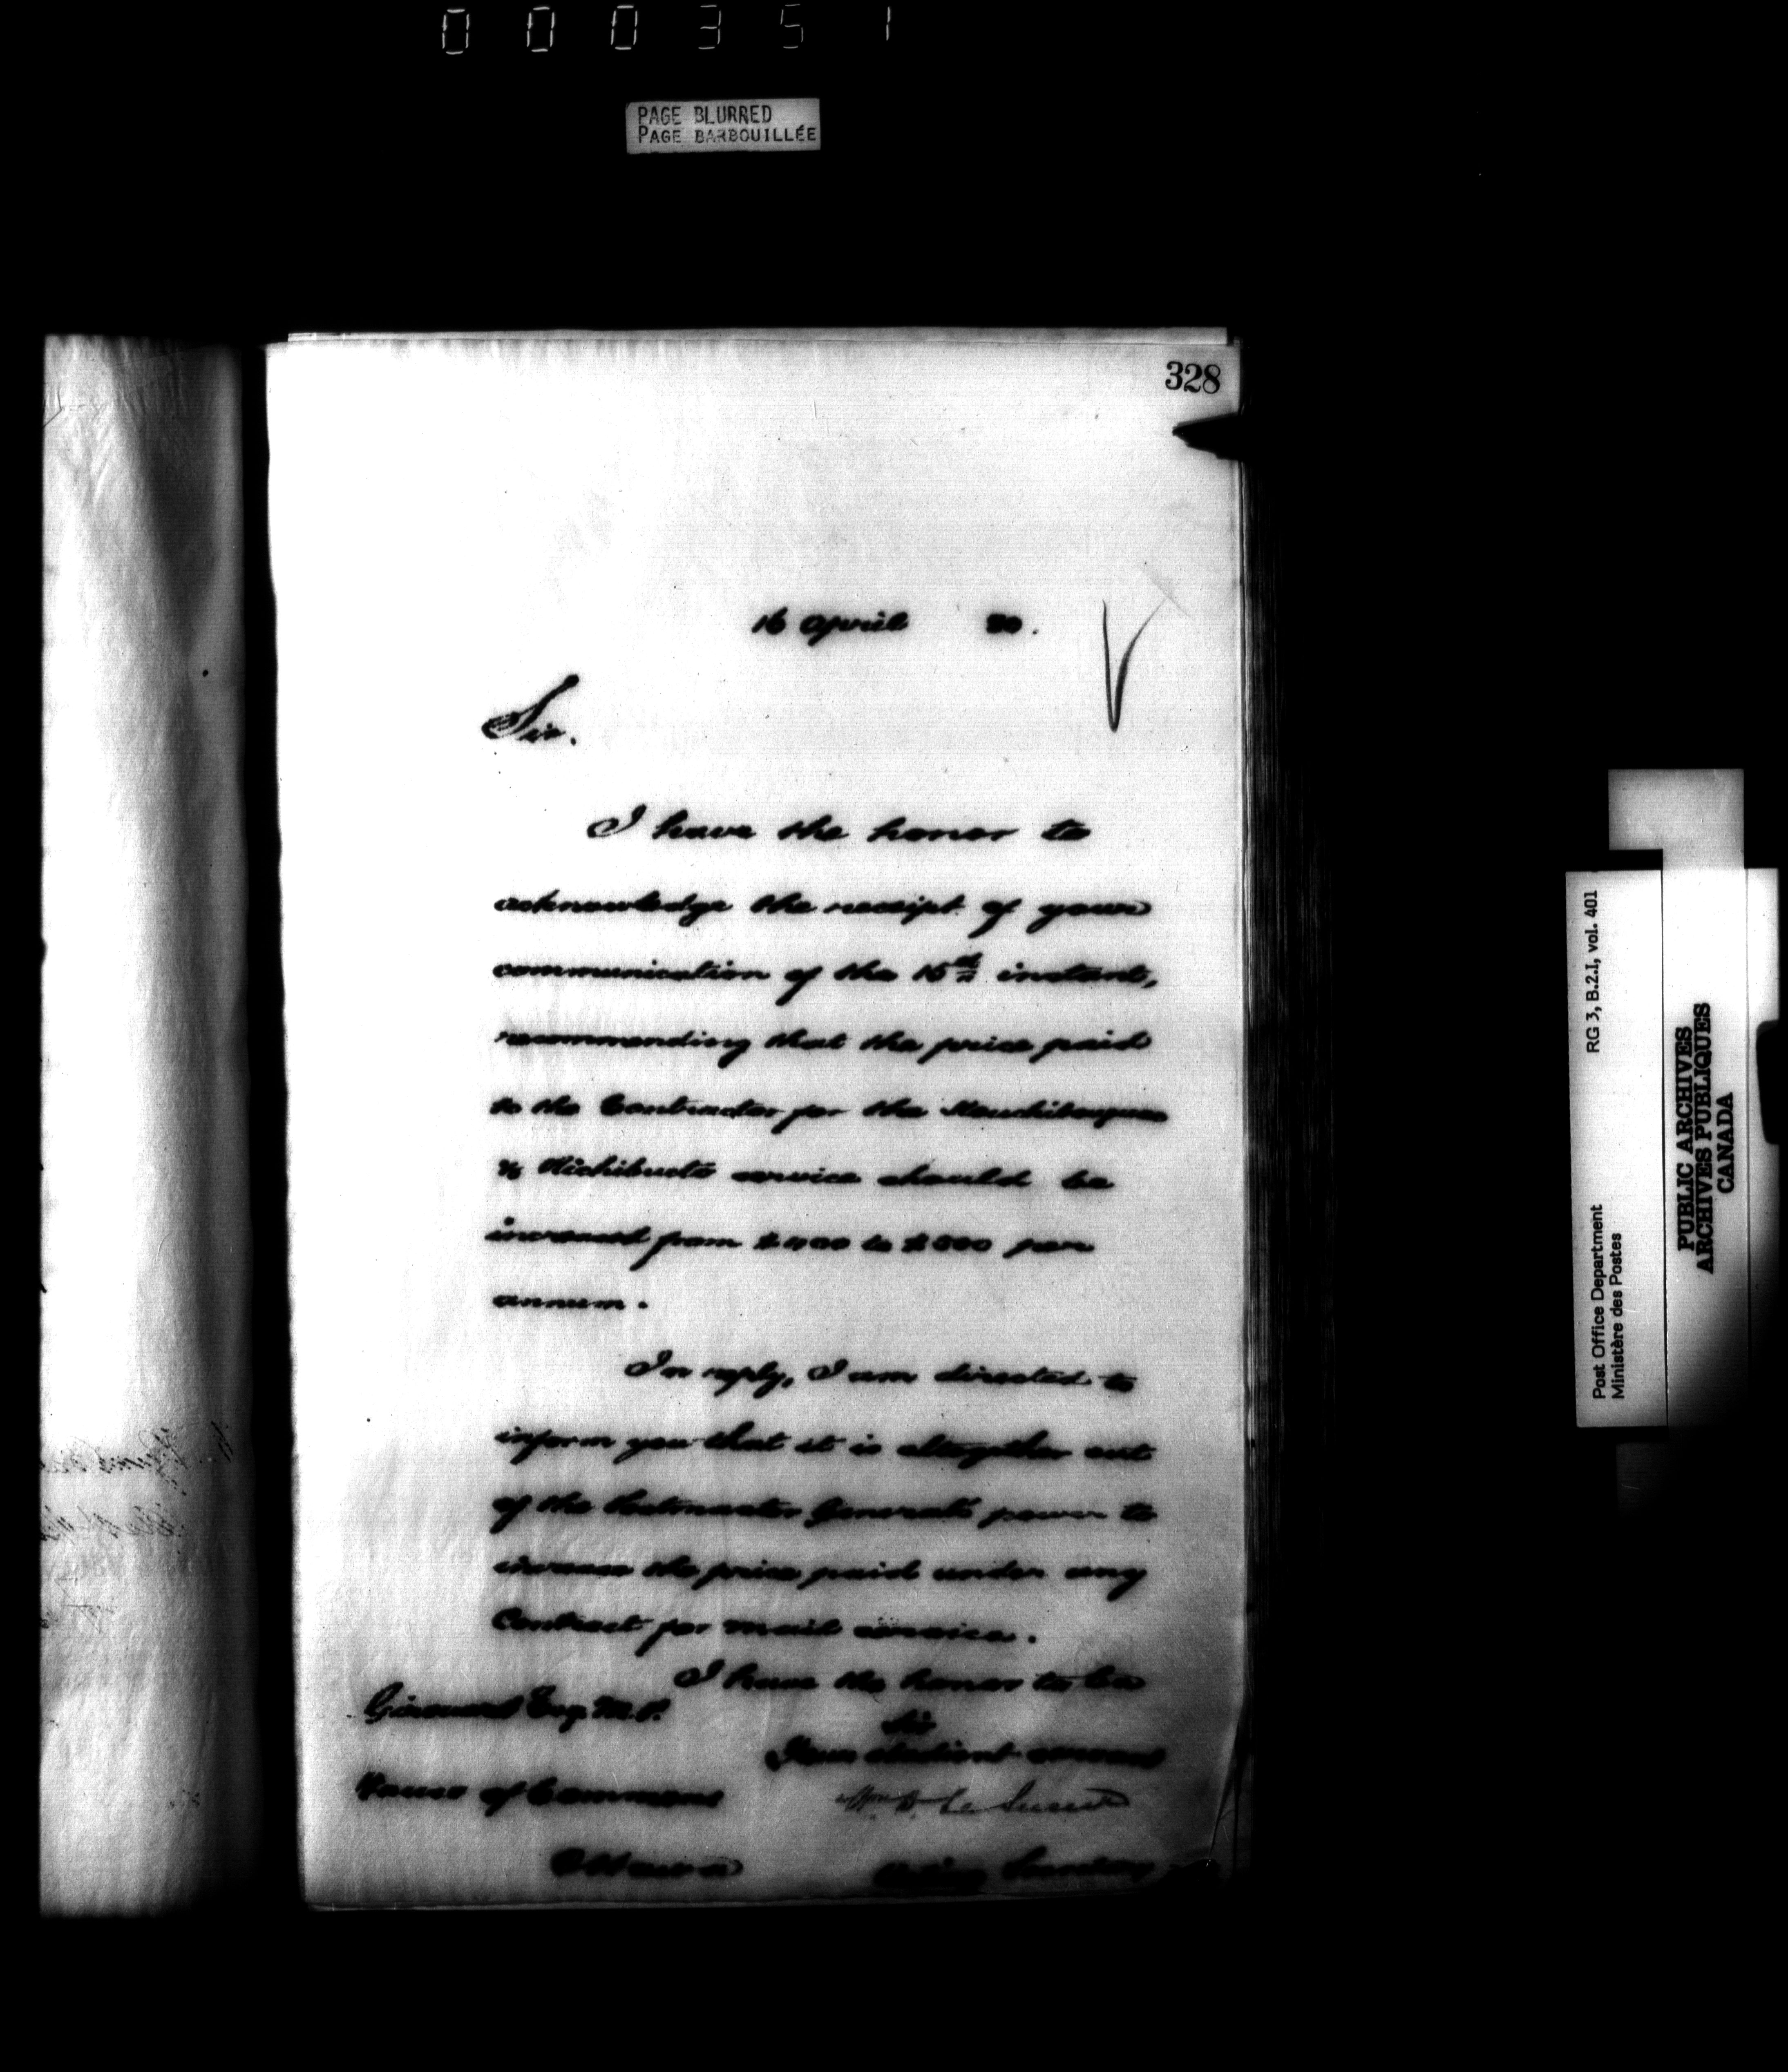 000351
PAGE BLURRED
PAGE BARBOUILLÉE
328
16 April 80.
Sir.
I have the honor to
acknowledge the receipt of your
communication of the 15th instant,
recommending that the price paid
to the Contractor for the Kouchibouguac
& Richibucto service should be
increased from $400 to $500 per
annum.
In reply, I am directed to
inform you that it is altogether out
of the Postmaster General's power to
increase the price paid under any
Contract for mail service.
I have the honor to be
Sir
Your obedient servant
Wm D. Le Sueur
Acting Secretary
Girouard Esq. M.P.
House of Commons
Ottawa
Post Office Department RG 3, B.2.I, vol. 401
Ministère des Postes
PUBLIC ARCHIVES
ARCHIVES PUBLIQUES
CANADA